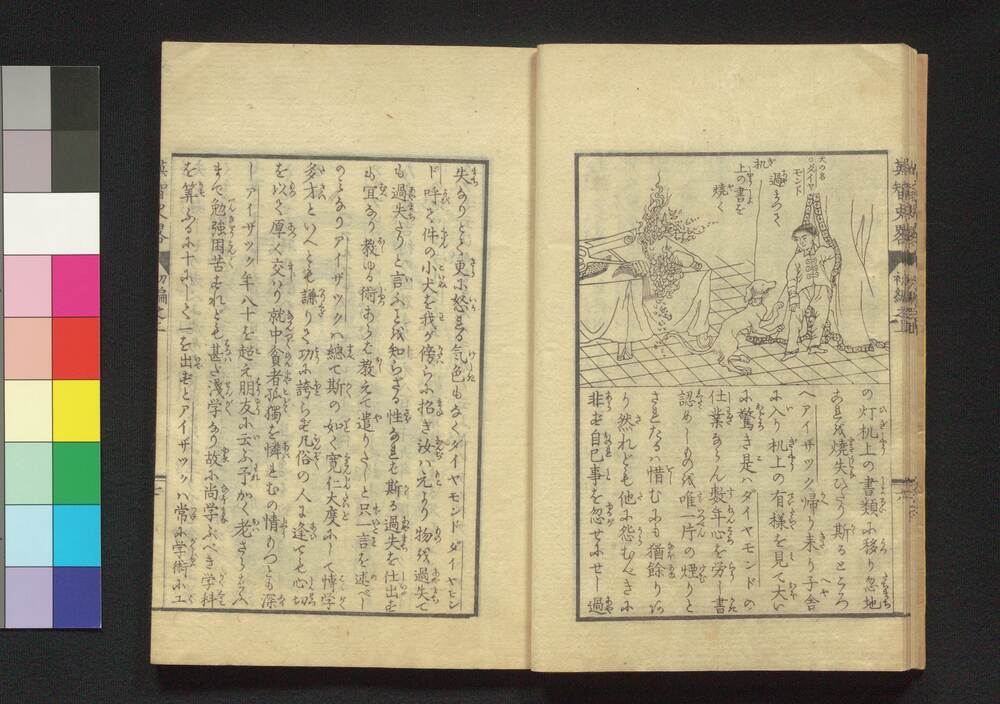 犬の名
ダイヤ
モンド
過まつて
机
上の書を
焼く
の灯机上の書類に移り忽地
あれを焼失ひたり斯るところ
へアイザック帰り来り子舎
に入り机上の有様を見て大い
に驚き是ハダイヤモンドの
仕業ならん数年心を労し書
認めしものを唯一片の煙りと
されたるハ惜むにも猶餘りあ
り然れども他に怨むべきに
非ず自己事を忽せにせし過
失なりとて更に怒れる気色もなくダイヤモンドダイヤモン
ド呼て件の小犬を我が傍らに招き汝ハ元より物を過失て
も過失たりと言ふことを知らざる性なれば斯る過失を仕出すも
宜なり教ゆる術あらば教えて遣りたしと只一言を述べし
のミなりアイザックハ總て斯の如く寛仁大度にして博学
多才といへども謙りて功に誇らず凡俗の人に逢ても心切
を以て厚く交ハり就中貧者孤獨を憐れむの情いつとも深
しアイザック年八十を超え朋友に云ふ予かく老さらばふ
まで勉強困苦すれども甚だ淺学なり故に尚学ぶべき学科
を算ふるに十にして一を出ずとアイザックハ常に学術に工
英智史略
初編之一